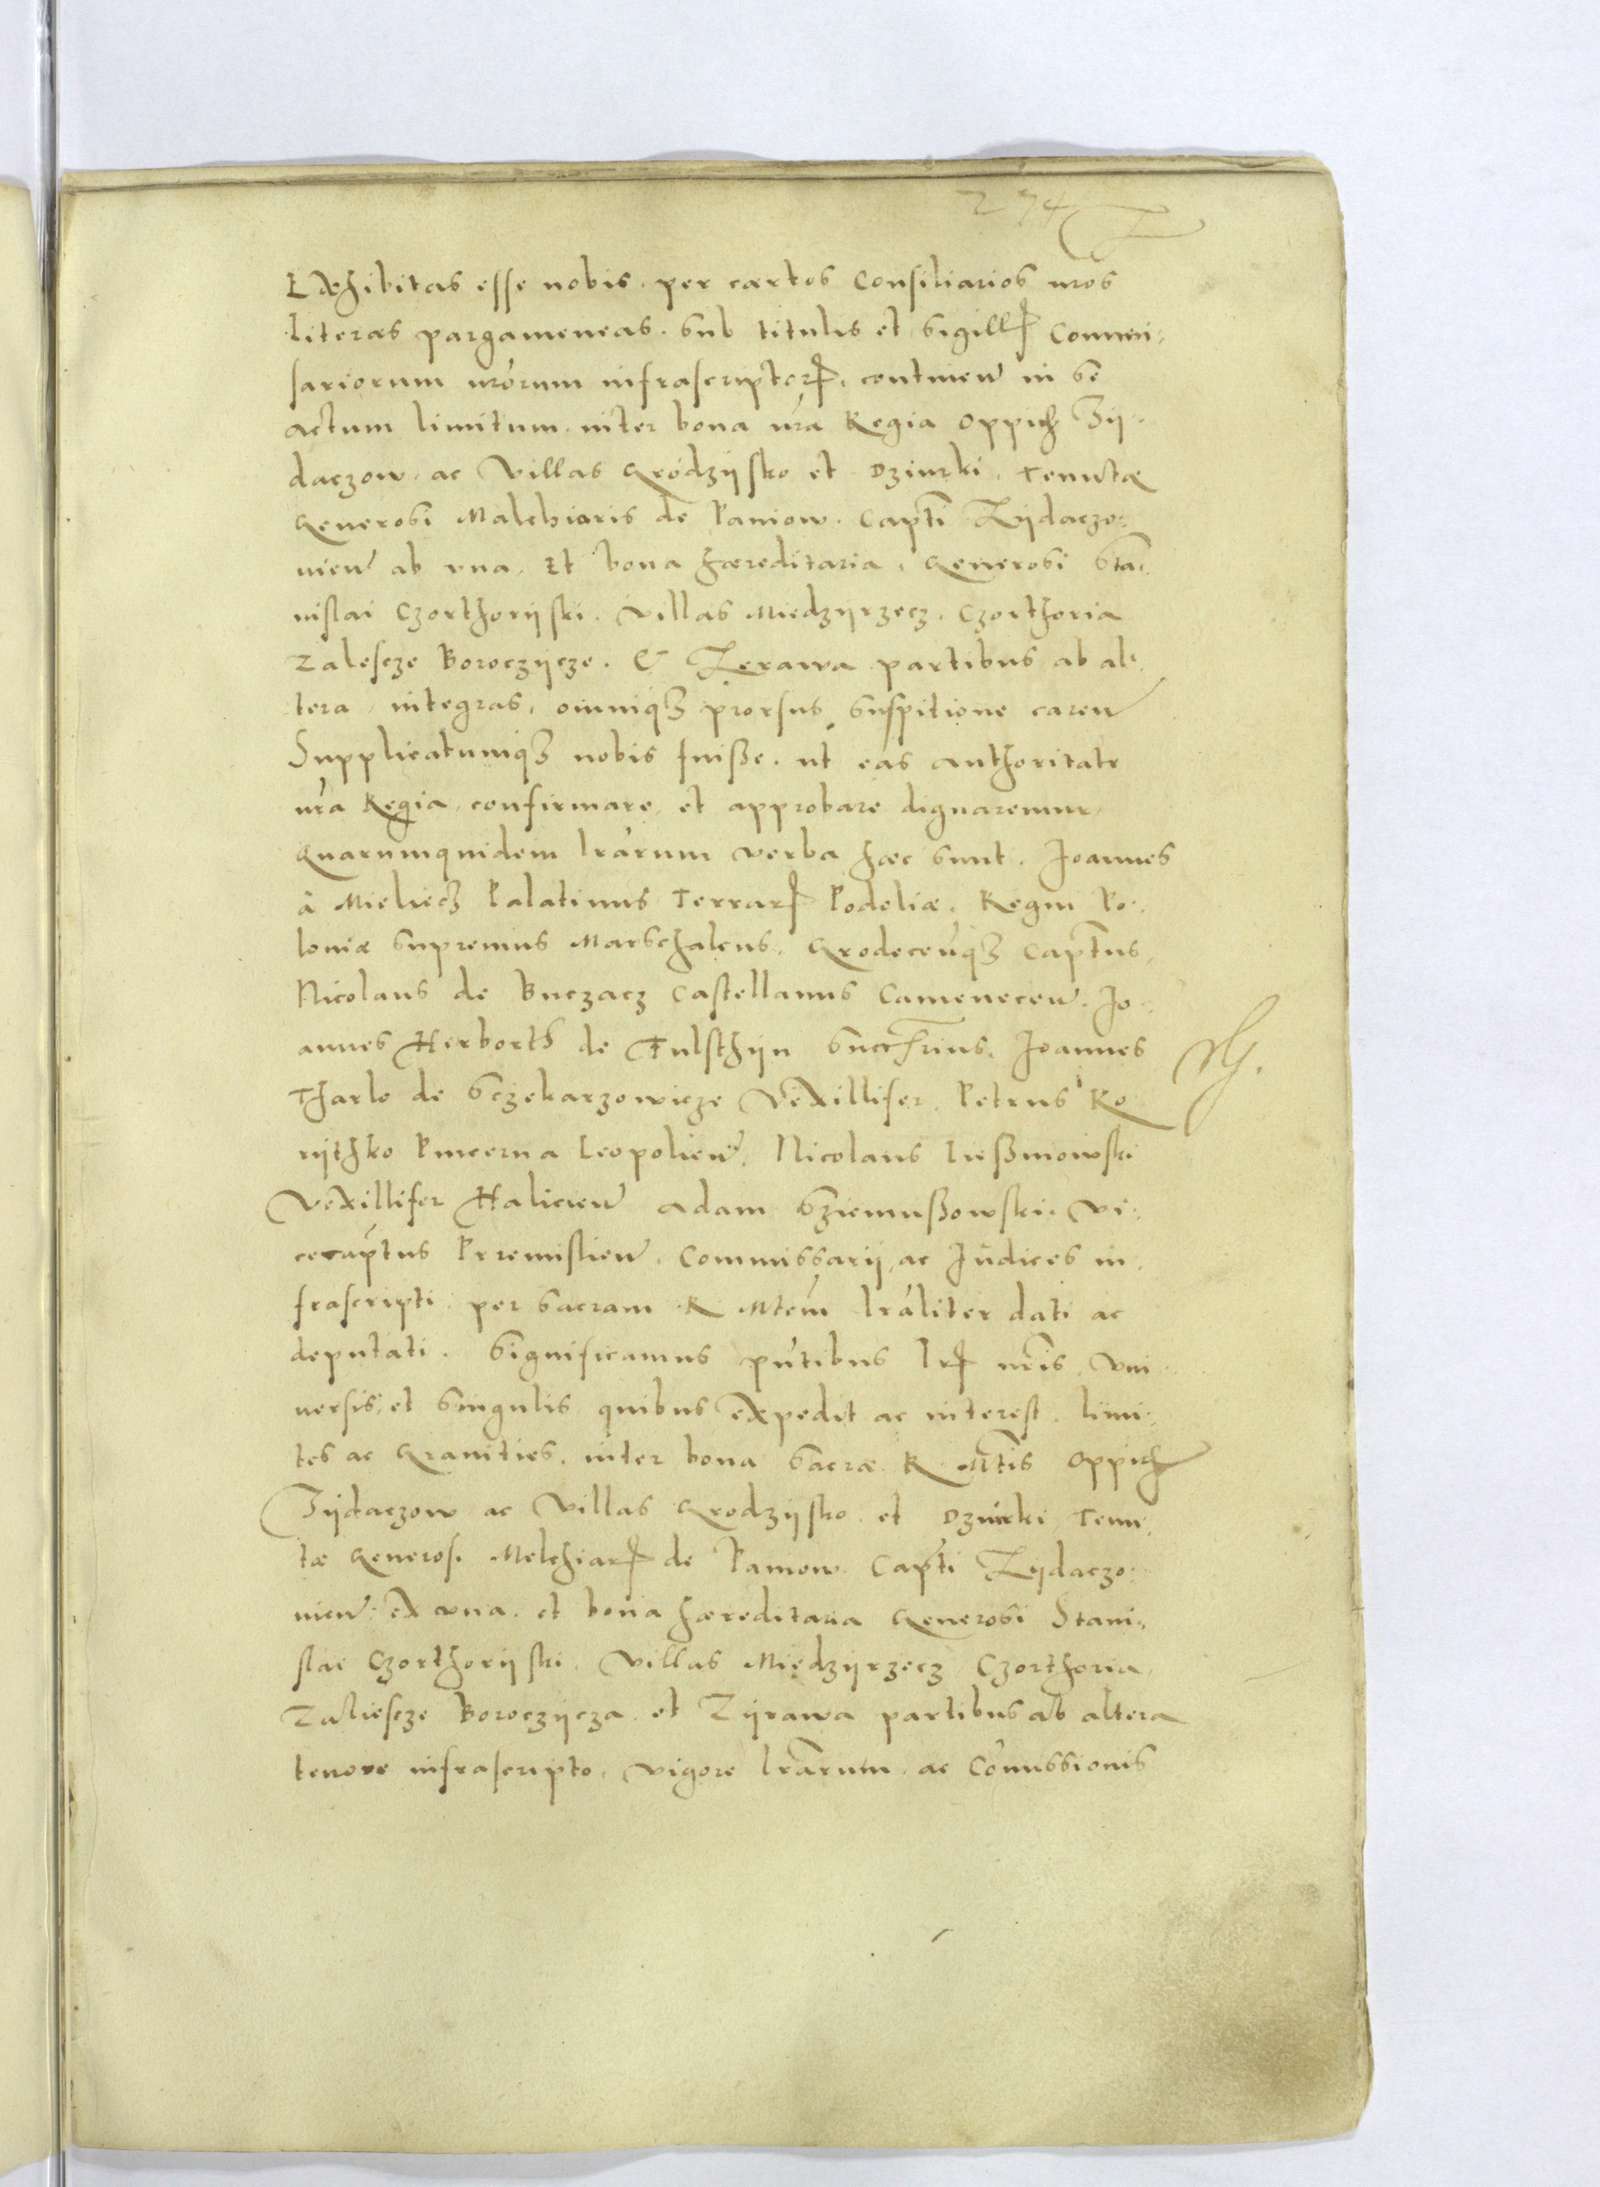 274
Exhibitas esse nobis. per certos Consiliarios nros
literas pargameneas. sub titulis et sigill Commi-
sariorum nrorum infrascriptor, continen in se
actum limitum. inter bona nra Regia Oppid Zy-
daczow, ac Villas Grodzijsko et Dziurki, Tenutæ
Generosi Malchioris de Paniow. Capti Zydaczo-
vien ab vna. Et bona hæreditaria, Generosi Sta-
nislai Czorthorijski. Villas Miedzyrzecz. Czorthoria
Zalescze Boroczijcze. & Zerawa partibus ab al-
tera, integras, omniq prorsus suspitione caren
Supplicatumq nobis fuisse. ut eas authoritate
nra Regia, confirmare, et approbare dignaremur,
Quarumquidem lrarum verba hæc sunt. Joannes
à Mieliecz Palatinus Terrar Podoliæ, Regni Po-
loniæ Supremus Marschalcus, Grodecenq Captus,
Nicolaus de Buczacz Castellanus Camenecen. Jo-
annes Herborth de Fulsthijn Succamrius, Joannes
Tharlo de Sczekarzowicze Vexillifer, Petrus Ko
rijthko Pincerna Leopolien. Nicolaus
Vexillifer Halicien Adam Sziemussowski. Vi-
cecaptus Premislien. Commissarij, ac Judices in-
frascripti per Sacram R Mtem lraliter dati ac
deputati. Significamus pntibus lr nris, vni-
versis, et singulis quibus expedit ac interest. limi-
tes ac Granities, inter bona Sacræ R Mtis Oppid
Zijdaczow ac Villas Grodzijsko et Dziurki Tenu-
tæ Generosi Melchiar de Paniow Capti Zydaczo-
vien ex vna. et bona hæreditaria Generosi Stani-
slai Czorthorijski. Villas Miedzijrzecz Czorthoria,
Zaliescze Boroczijcza et Zijrawa partibus ab altera
tenore infrascripto, vigore lrarum. ac Comissionis